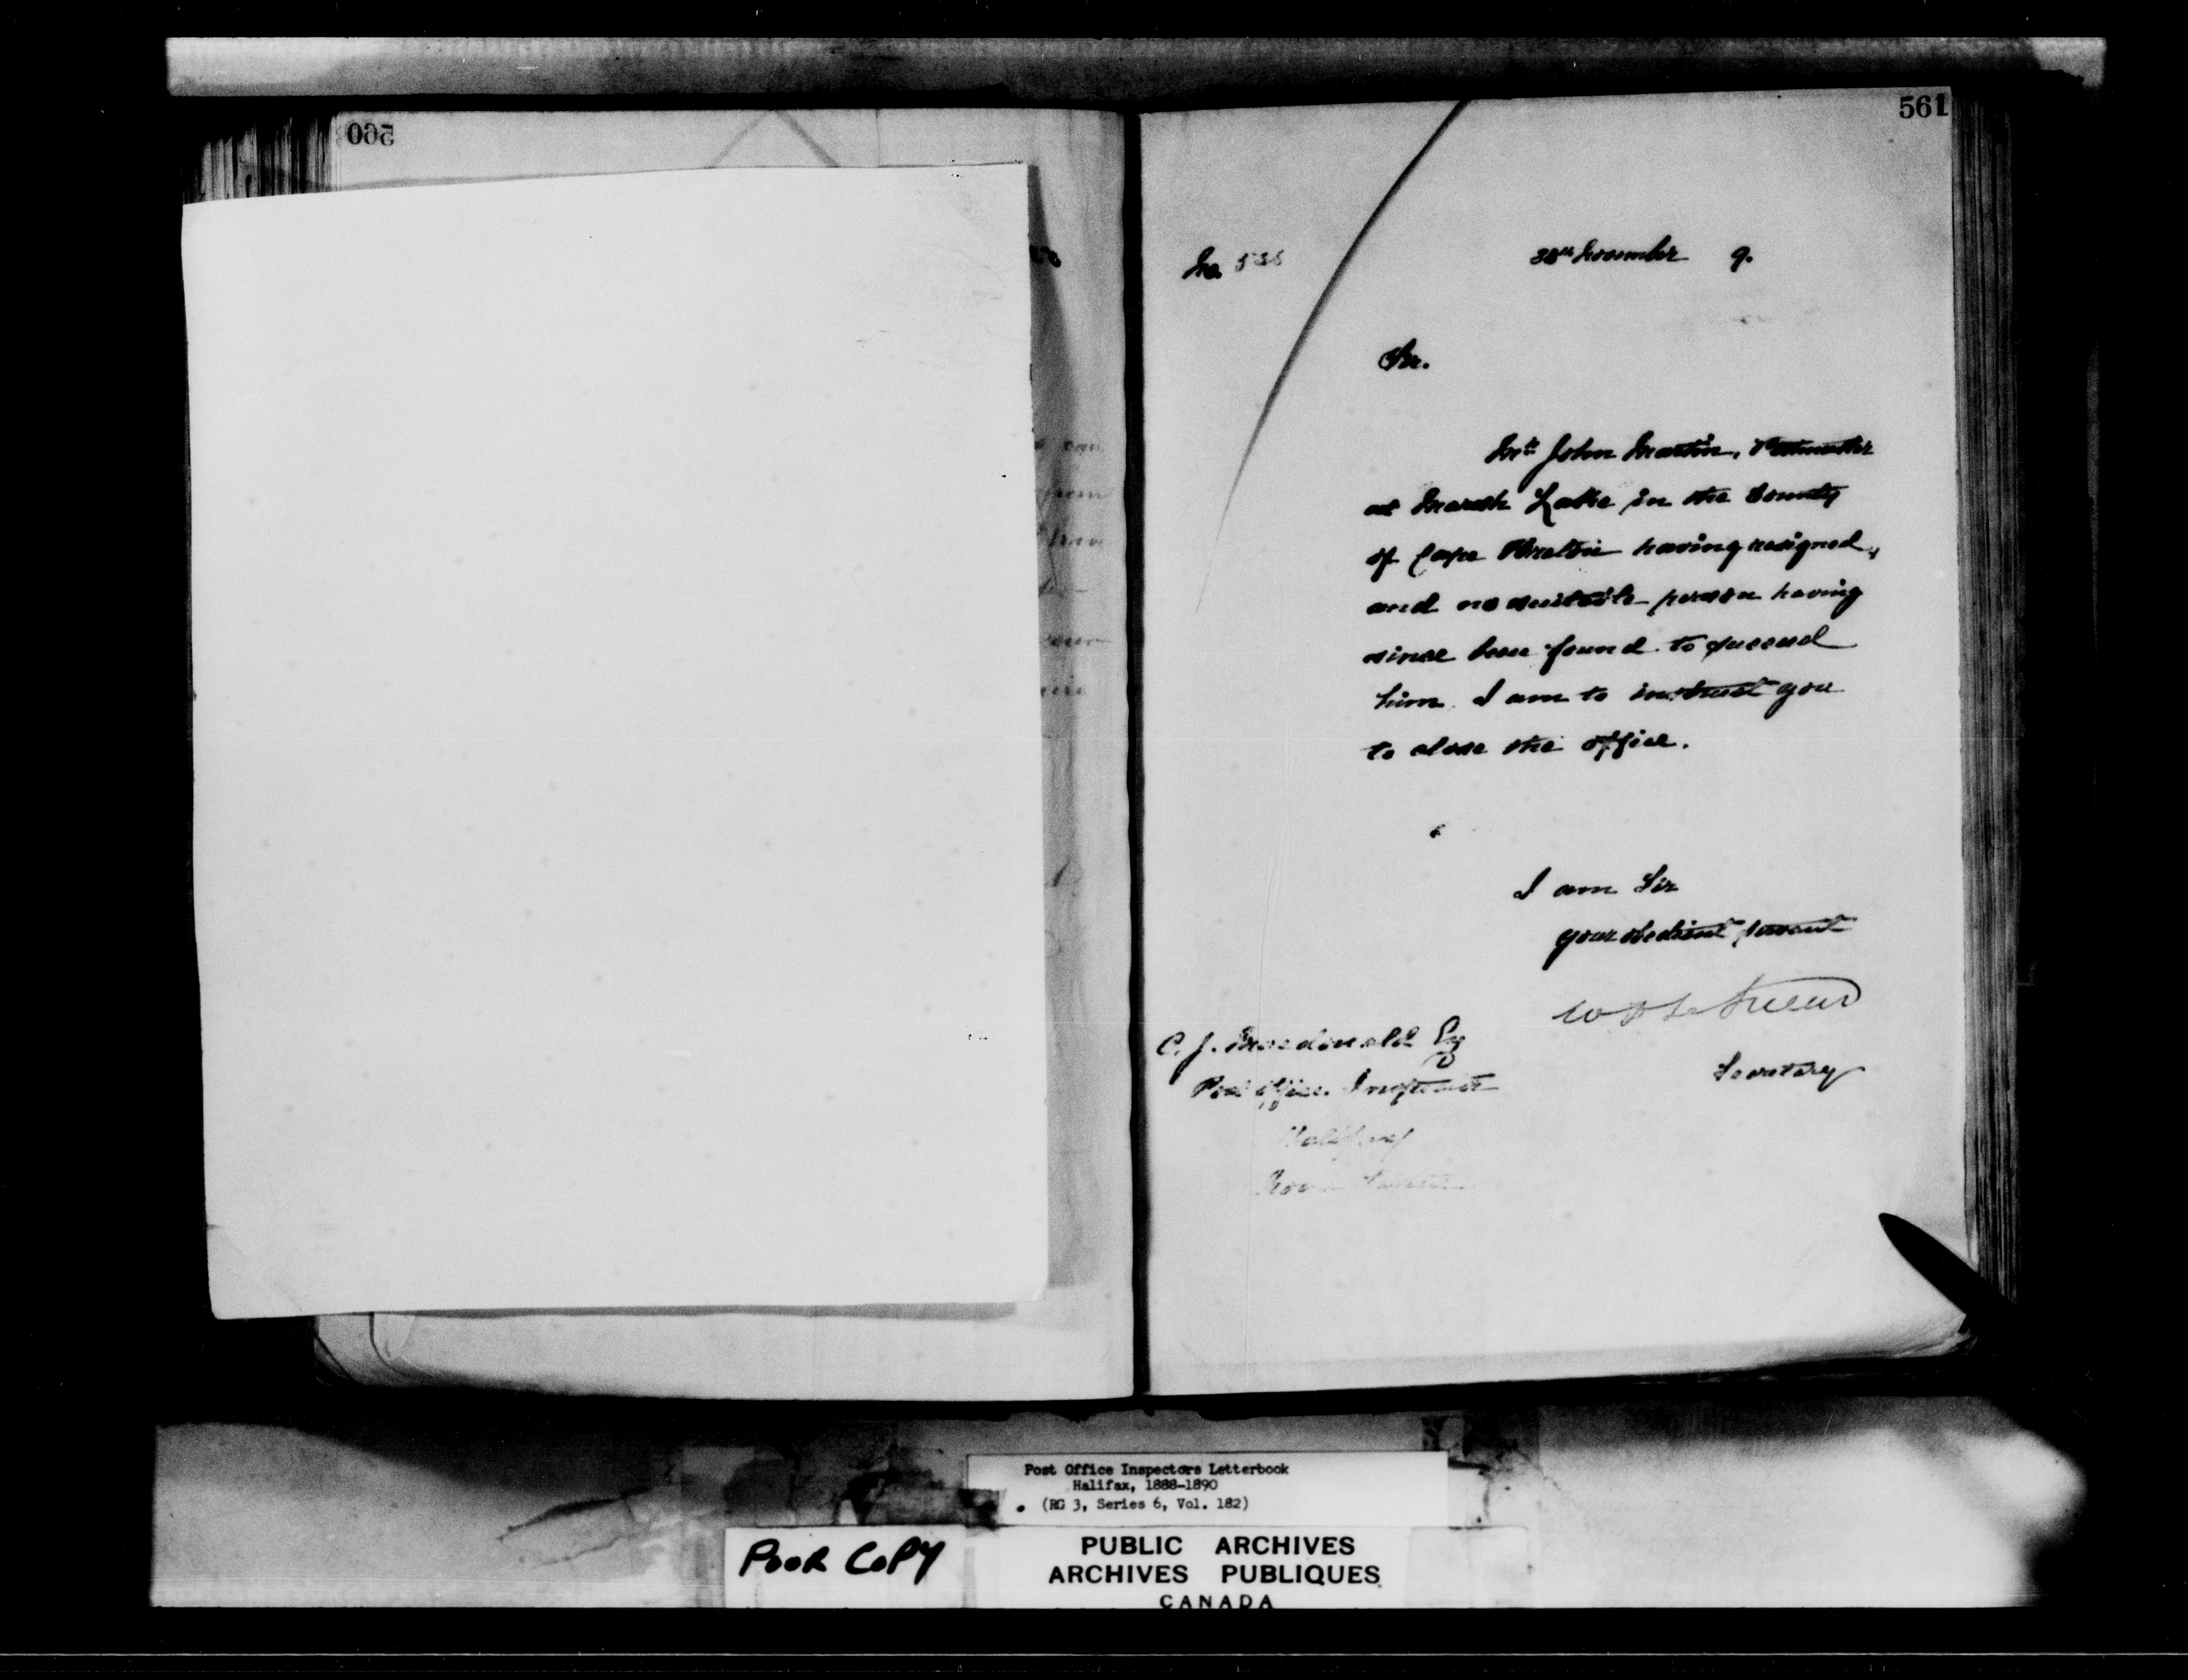 560
561
No. 536
30th November 9.
Sir.
Mr. John Martin, Postmaster
at Marsh Lake in the County
of Cape Breton having resigned,
and no suitable person having
since been found to succeed
him, I am to instruct you
to close the office.
I am Sir
your obedient servant
W D LeSueur
Secretary
C. J. Macdonald Esq
Post Office Inspector
Halifax
Nova Scotia
Post Office Inspectors Letterbook
Halifax, 1888-1890
(RG 3, Series 6, Vol. 182)
POOR COPY
PUBLIC ARCHIVES
ARCHIVES PUBLIQUES
CANADA